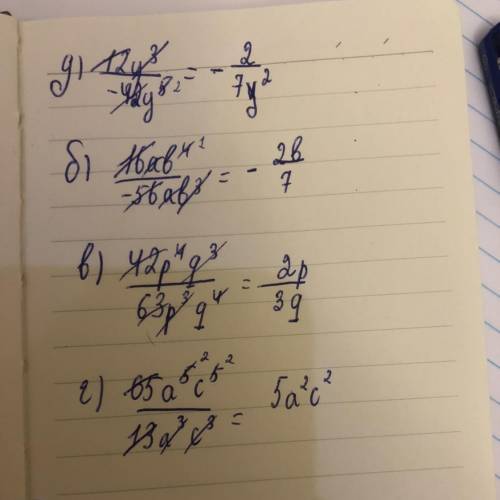 д) 12y³ / -42y⁵ ² = - 2 / 7y²
б) 16ab⁴ ¹ / -56ab³ = - 2b / 7
в) 42p⁴g³ / 63p³g⁴ = 2p / 3g
г) 65a⁵ ²c⁵ ² / 13a³c³ = 5a²c²